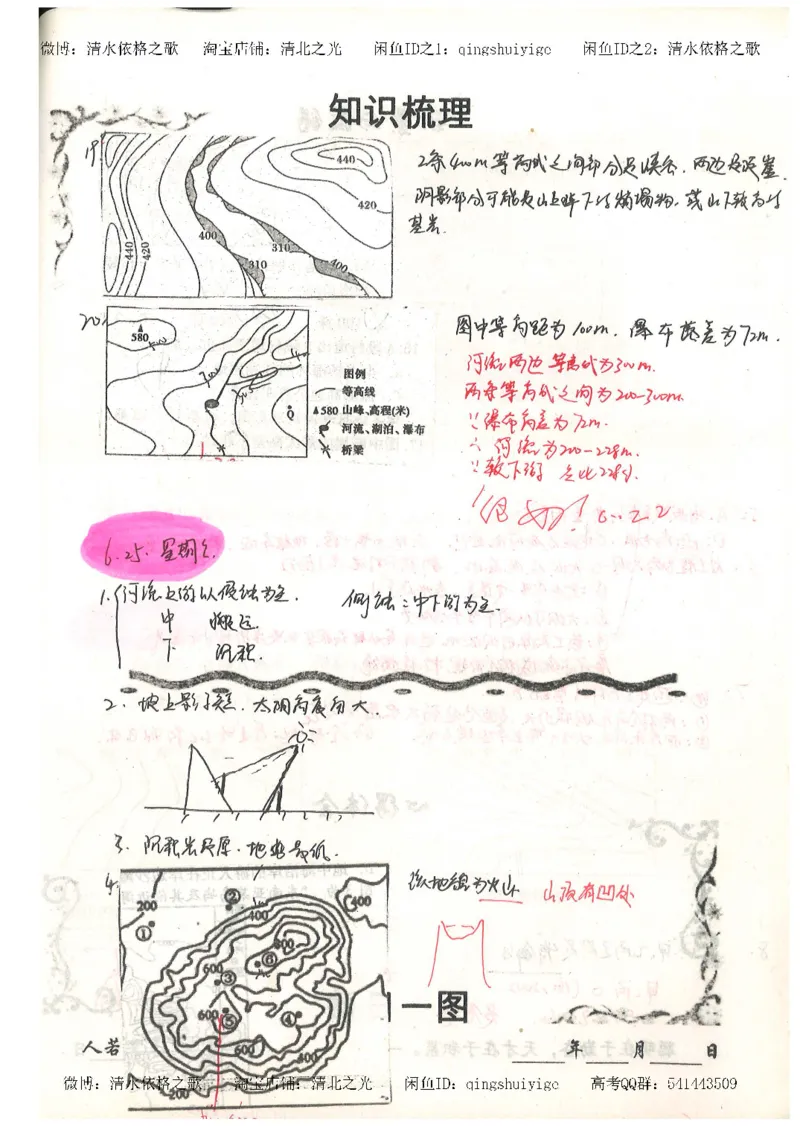 微博：清水依格之歌 淘宝店铺：清北之光 闲鱼ID之1：qingshuiyige 闲鱼ID之2：清水依格之歌
知识梳理
19.
440
420
400
310
310
400
440
420
2条400m等高线之间部分是峡谷，两边是陡崖.
阴影部分可能是山上崩下的崩塌物，或山下较高的
基岩.
20.
580
400
300
图例
等高线
580 山峰、高程(米)
河流、湖泊、瀑布
桥梁
Q
图中等高距为100m，瀑布落差为72m.
河流两边等高线为300m.
两条等高线之间为200-300m.
∵瀑布高差为72m.
∴河流为200-228m.
∵较下游
6.25. 星期
1. 河流上游以侵蚀为主. 侧蚀：中下游为主.
中 搬运.
下 沉积.
2. 坡上影子
太阳高度角大.
3. 沉积岩厚，地势低.
4.
200
①
②
400
400
600
⑥
600
③
600
⑤
④
600
400
200
该地貌为火山 山顶有凹处
一图
人若
年 月 日
微博：清水依格之歌 淘宝店铺：清北之光 闲鱼ID：qingshuiyige 高考QQ群：541443509